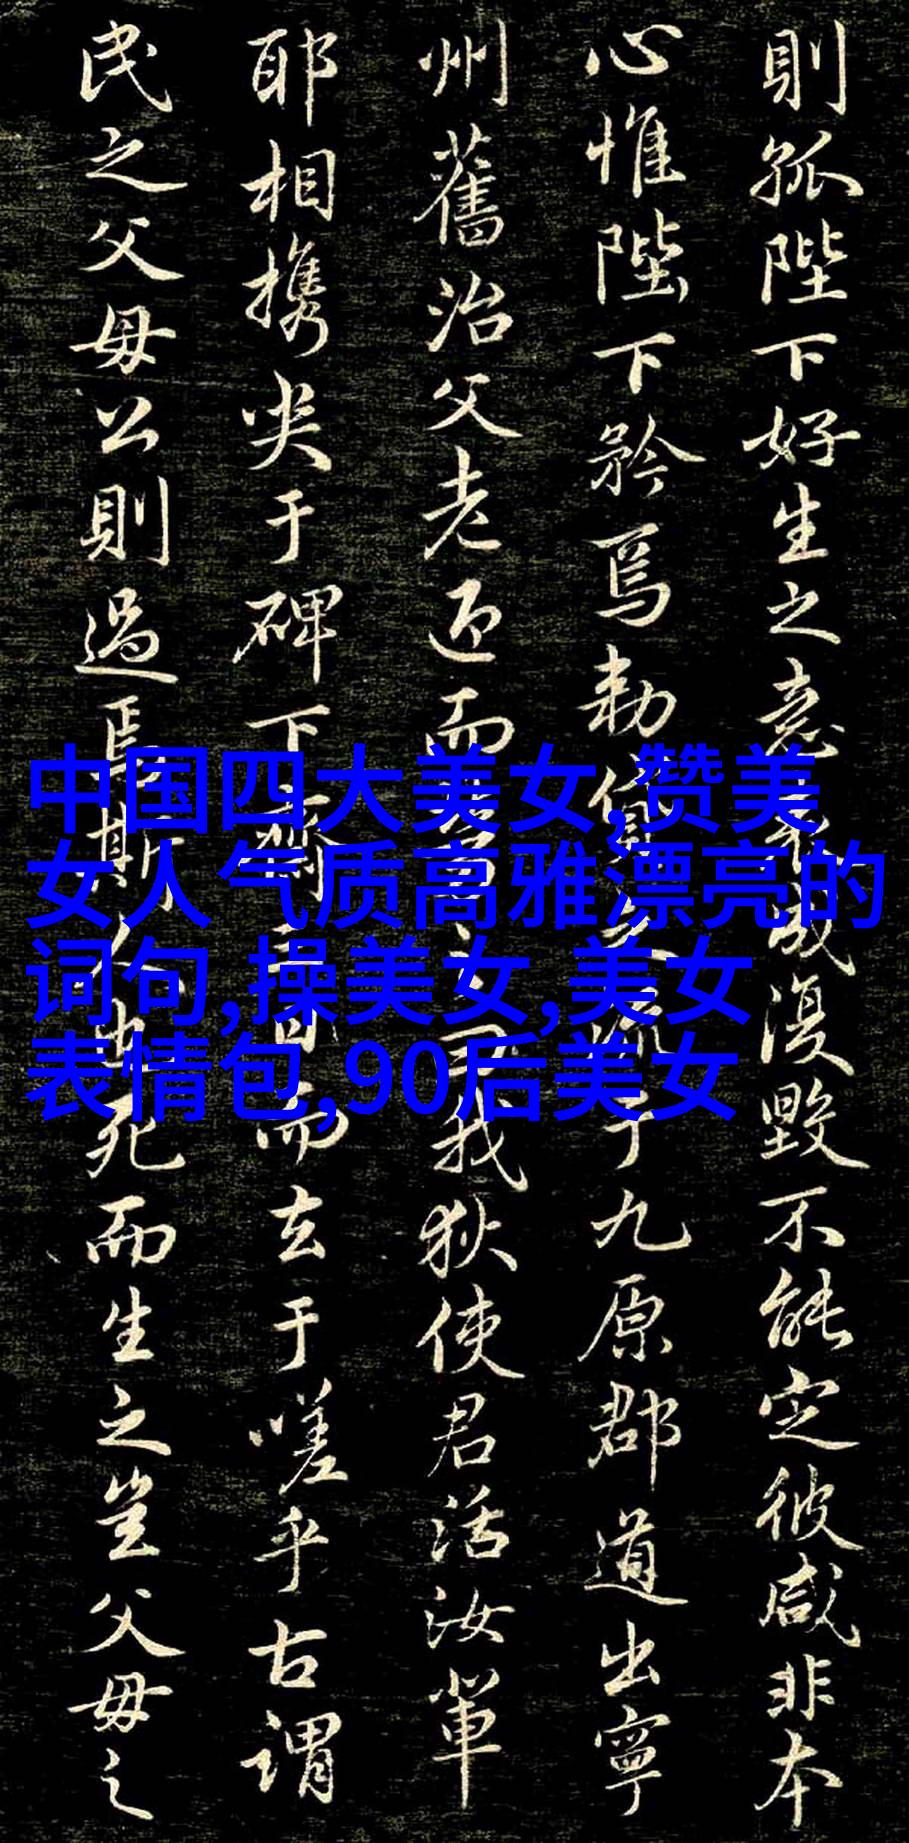 則孤陛下好生之意表成復毀不能定彼咸非本
心惟陛下矜焉勅貸之流于九原郡道出寧
州舊治父老迎而勞之曰我狄使君活汝輩
耶相携哭于碑下齋三日而去于嗟乎古謂
民之父母公則過焉斯人也死而生之豈父母之
中国四大美女,赞美
女人气质高雅漂亮的
词句,操美女,美女
表情包,90后美女